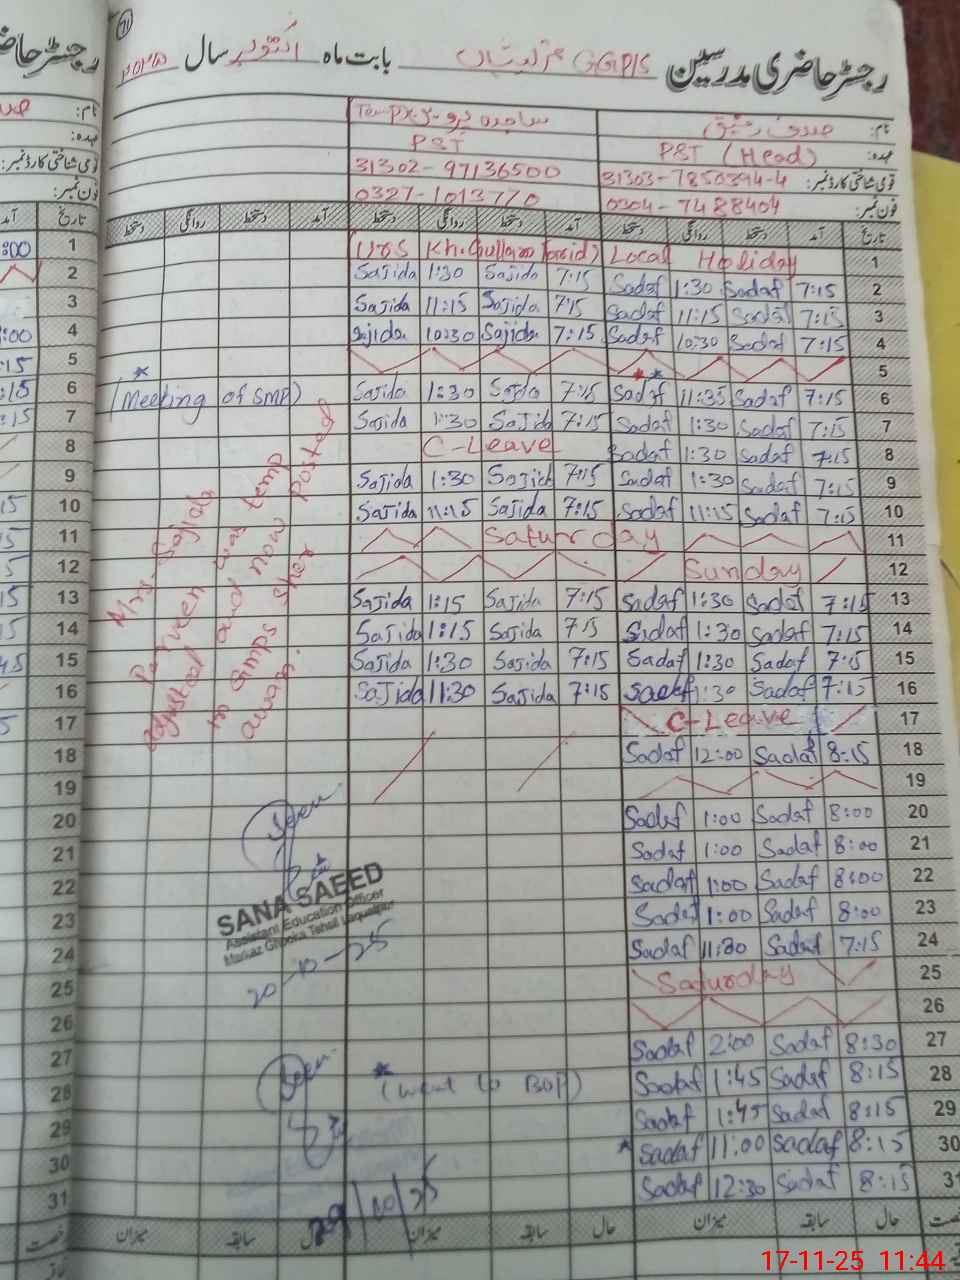 رجسٹر حاضری مدرسین GGP/S بابت ماہ اکتوبر سال
نام: صدف
عہدہ: PST (Head) PST
قومی شناختی کارڈ نمبر: 31303-7850394-4 31302-97136500
فون نمبر: 0304-7488404 0327-1013770
تاریخ آمد دستخط روانگی دستخط آمد دستخط روانگی دستخط آمد دستخط روانگی دستخط
1 Local Holiday
2 7:15 Sadaf 1:30 Sadaf 7:15 Sajida 1:30 Sajida
3 7:15 Sadaf 11:15 Sadaf 7:15 Sajida 11:15 Sajida
4 7:15 Sadaf 10:30 Sadaf 7:15 Sajida 10:30 Sajida
5
6 7:15 Sadaf 11:35 Sadaf 7:15 Sajida 1:30 Sajida (Meeting of SMP)
7 7:15 Sadaf 1:30 Sadaf 7:15 Sajida 1:30 Sajida
8 7:15 Sadaf 1:30 Sadaf C-Leave
9 7:15 Sadaf 1:30 Sadaf 7:15 Sajida 1:30 Sajida
10 7:15 Sadaf 11:15 Sadaf 7:15 Sajida 11:15 Sajida
11 Saturday
12 Sunday
13 7:15 Sadaf 1:30 Sadaf 7:15 Sajida 1:15 Sajida
14 7:15 Sadaf 1:30 Sadaf 7:15 Sajida 1:15 Sajida
15 7:15 Sadaf 1:30 Sadaf 7:15 Sajida 1:30 Sajida
16 7:15 Sadaf 1:30 Sadaf 7:15 Sajida 11:30 Sajida
17 C-Leave
18 8:15 Sadaf 12:00 Sadaf
19
20 8:00 Sadaf 1:00 Sadaf
21 8:00 Sadaf 1:00 Sadaf
22 8:00 Sadaf 1:00 Sadaf
23 8:00 Sadaf 1:00 Sadaf
24 7:15 Sadaf 11:30 Sadaf
25 Saturday
26
27 8:30 Sadaf 2:00 Sadaf
28 8:15 Sadaf 1:45 Sadaf (went to BOP)
29 8:15 Sadaf 1:45 Sadaf
30 8:15 Sadaf 11:00 Sadaf
31 8:15 Sadaf 12:30 Sadaf
Mrs. Sajida
Parveen was temp
adjusted and now posted
SANA SAEED
Assistant Education Officer
20-10-25
حال سابقہ میزان حال میزان سابقہ میزان
17-11-25 11:44